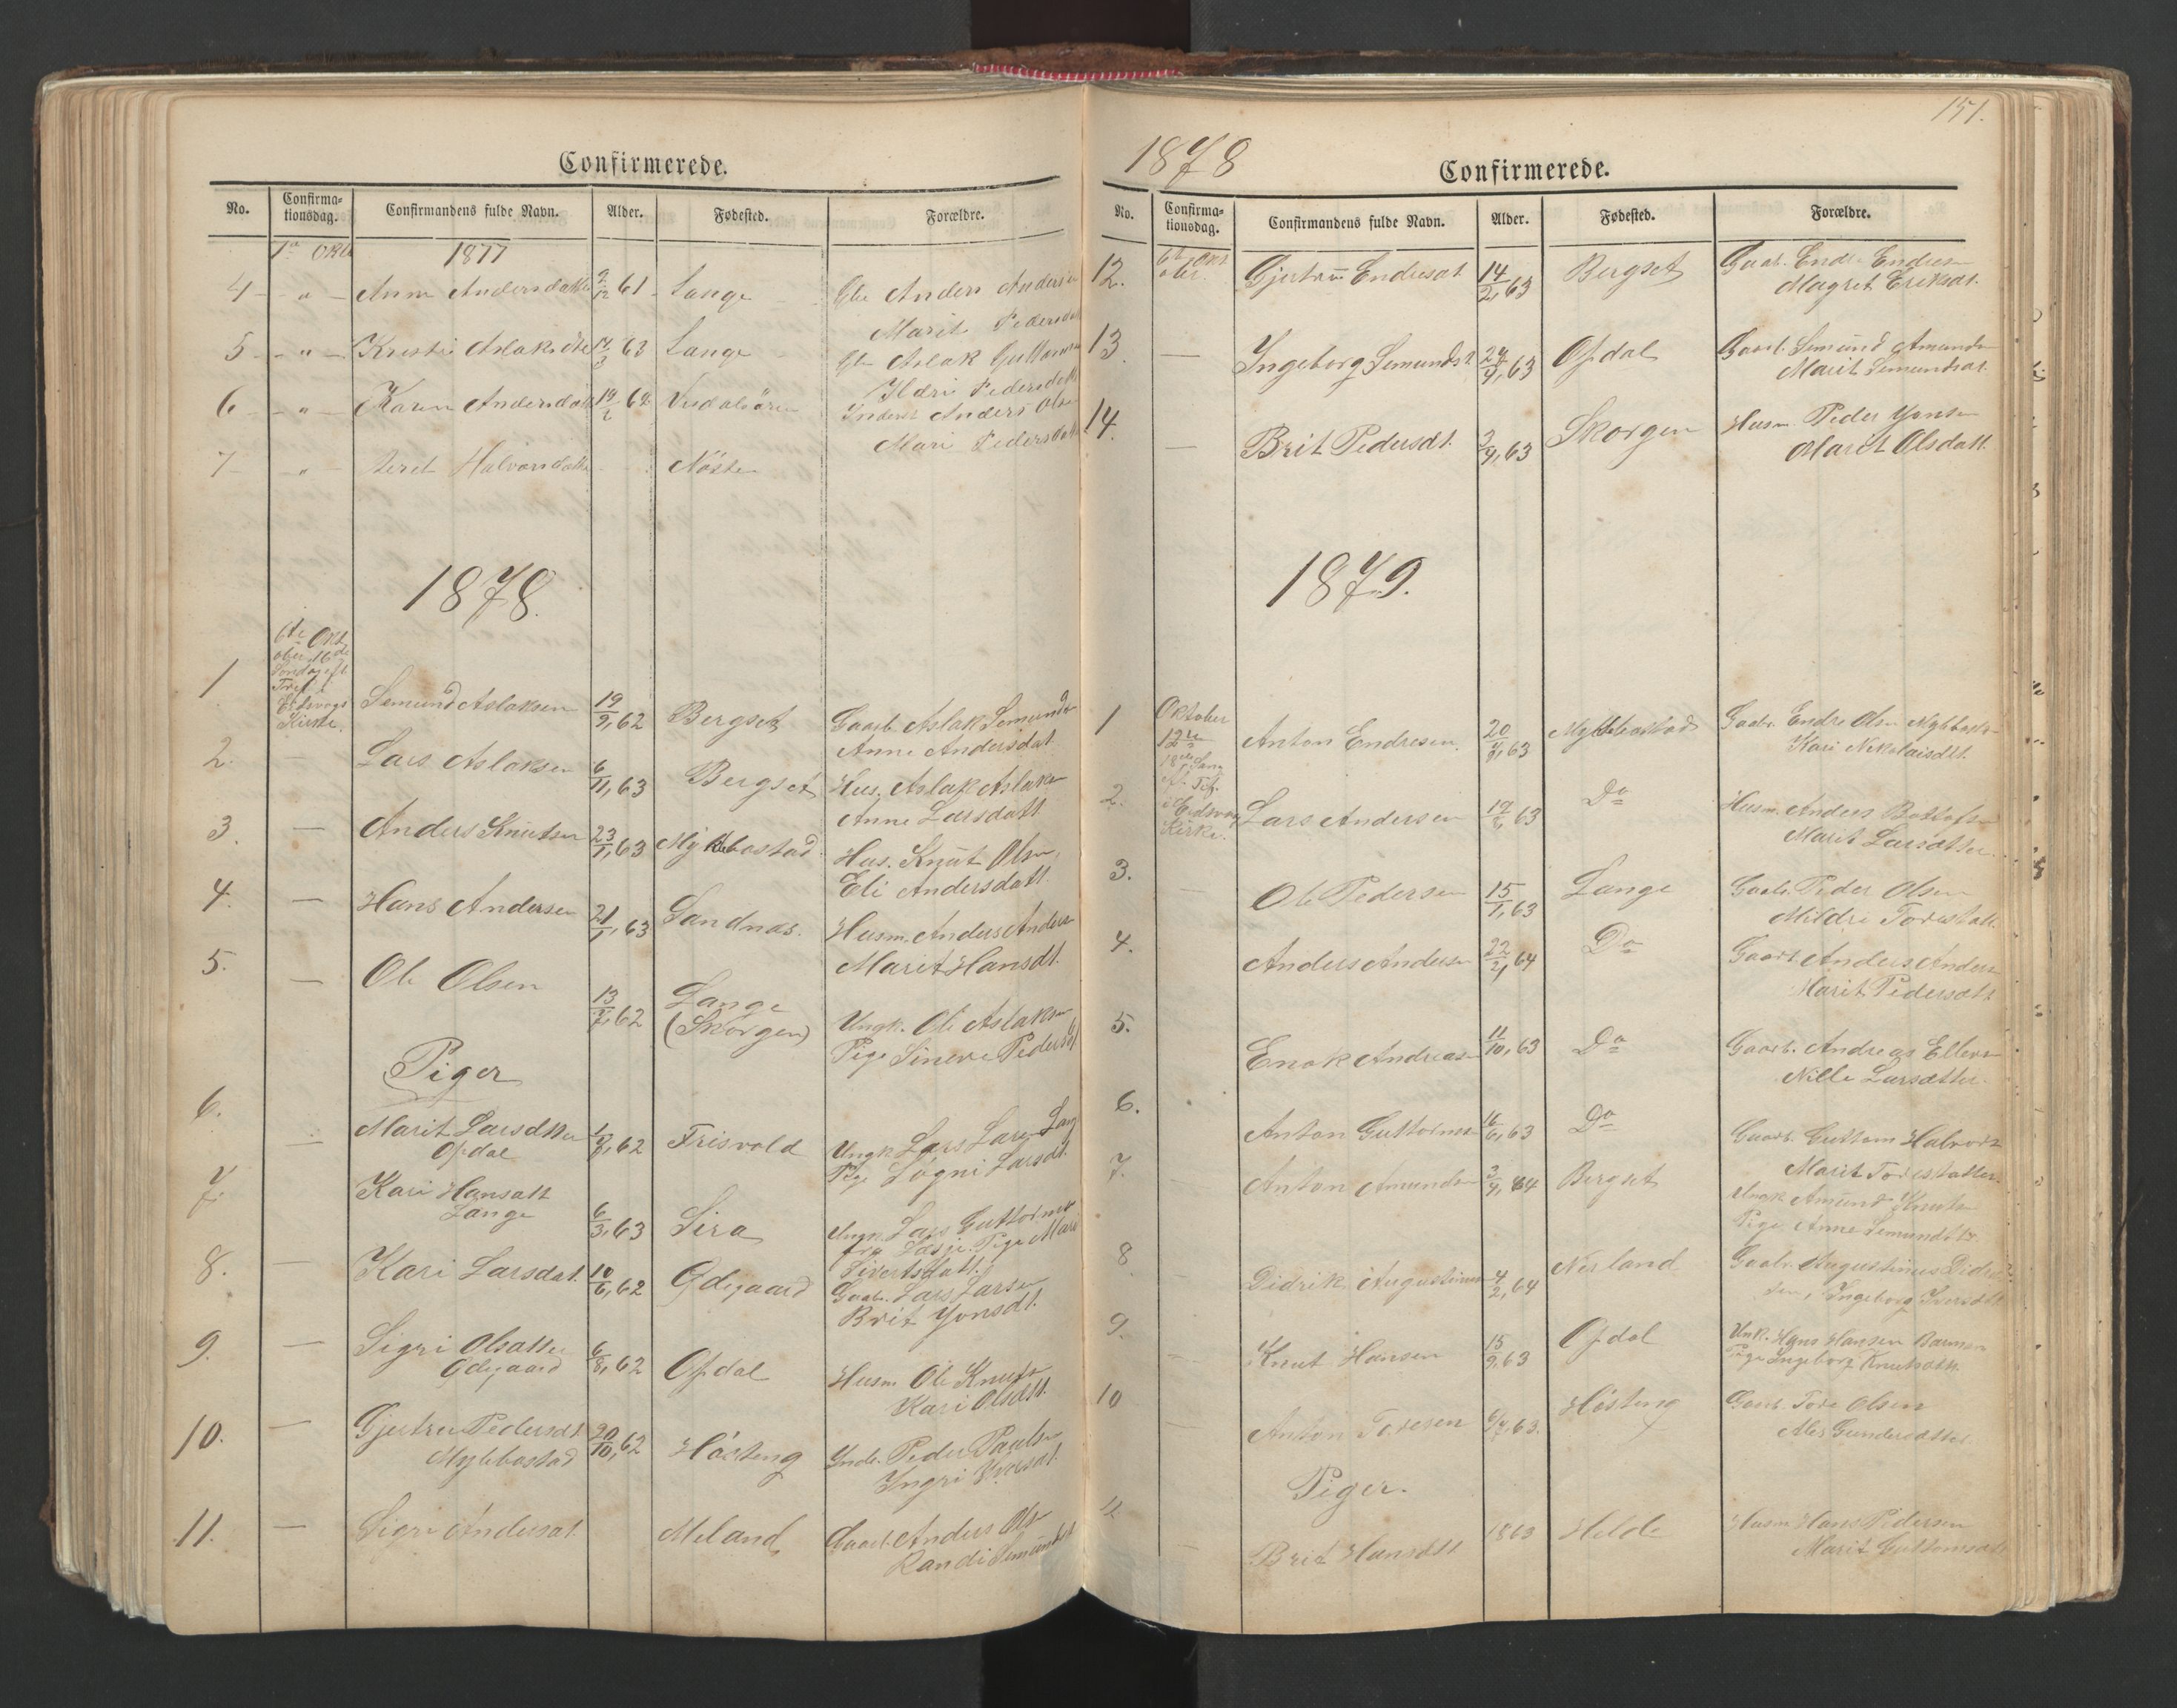 Confirmerede.
No. Confirma-tionsdag. Confirmandens fulde Navn. Alder. Fødested. Forældre.
1877
4 - " - Anne Andersdatter 9/12 61 Lange Gbr Anders Andersen
Marit Pedersdatt
5 - " - Kristi Aslaksdtr 63 Lange Gbr Aslak Guttormsen
Ildri Pedersdatt
6 - " - Karen Andersdatt 62 Anders Olsen
Mari Pedersdatt
7 - " - Halvorsdatter Nöste
1878.
6te Okt
ober 16de
Søndag eft.
Tref. i
Eidsvogs
Kirke.
1 Semund Aslaksen 19/9, 62 Bergset Gaarb. Aslak Semunds
Anne Andersdat.
2. — Lars Aslaksen 6/11, 63 Bergset Hus. Aslak Aslaks
Anne Larsdatt.
3. — Anders Knutsen 23/1, 63 Myklebostad. Hus. Knut Olsen,
Eli Andersdatt.
4. — Hans Andersen 21/1, 63 Sandnes. Husm. Anders Anders
Marit Hansdt.
5. — Ole Olsen 13/7, 62 Lange
(Skorgen) Ungk. Ole Aslaksen
Pige Sineve Pedersdt
Piger
6. — Marit Larsdtter
Opdal 62 Frisvold Ungk Lars Lars Lang
Pige Sögni Larsdt.
7. Kari Hansdtt
Lange 6/3, 63 Sira Ungk. Lars Guttorms
fra Lesje. Pige Mari
Sivertsdatt.
8. — Kari Larsdat. 10/6, 62 Ødegaard Gaarb. Lars Larsen
Brit Yonsdt.
9. — Sigri Olsdtter
Ødegaard 6/8, 62 Opdal Husm. Ole Knuts
Kari Olsdtt.
10. — Gjertru Pedersdt.
Myklebostad 20/10, 62 Hösteng Inde. Peder Paulsen
Ingri Iversdt.
11. — Sigri Andersdt. Meland Gaarb. Anders Ols
Randi Semundsdt
151.
1878
Confirmerede.
No. Confirma-tionsdag. Confirmandens fulde Navn. Alder. Fødested. Forældre.
12. 6te Okt
ober. Gjertru Endresdt. 14/2, 63 Bergset Gaarb. Endre Endresen
Magret Eriksdt.
13. — Ingeborg Semundsdt 24/4, 63 Opdal Gaarb. Semund Amunds
Marit Semundsdt.
14. — Brit Pedersdt. 2/4, 63 Skorgen Husm. Peder Yonsen
Marit Olsdatt.
1879.
Oktober
12te
18de Søn
ef. Tref.
i Eidsvog
Kirke.
1 Anton Endresen. 63 Myklebostad Gaarb. Endre Olsen Myklebost
Kari Nekolaisdtt.
2. Lars Andersen 63 Do Husm. Anders Bottolfs
Marit Larsdtter.
3. — Ole Pedersen 15/1, 63 Lange Gaarb. Peder Olsen
Mildri Torestatt.
4. Anders Andersen 22/2, 64 Do Gaarb. Anders Anders
Marit Pedersdtt
5. Enok Andreasen 11/10, 63 Do Gaarb. Andreas Ellevs
Nille Larsdtter.
6. Anton Guttormsen 16/6, 63 Do Gaarb. Guttorm Halvors
Marit Torestatter.
7. Anton Amundsen 3/4, 64 Bergset Ungk Amund Knutsen
Pige Anne Semundsdtr.
8 Didrik Augustinusen 4/2, 64 Nesland Gaarb. Augustinus Didrik
sen, Ingeborg Iversdtt
9. Knut Hansen 15/9, 63 Opdal Unk. Hans Hansen
Pige Ingeborg Knutsdtt.
10 Anton Toresen 63. Hösteng Gaarb. Tore Olsen
Gundersdtter
Piger.
Brit Hansdtt 1863 Helde Husm Hans Pedersen
Marit Guttormsdt